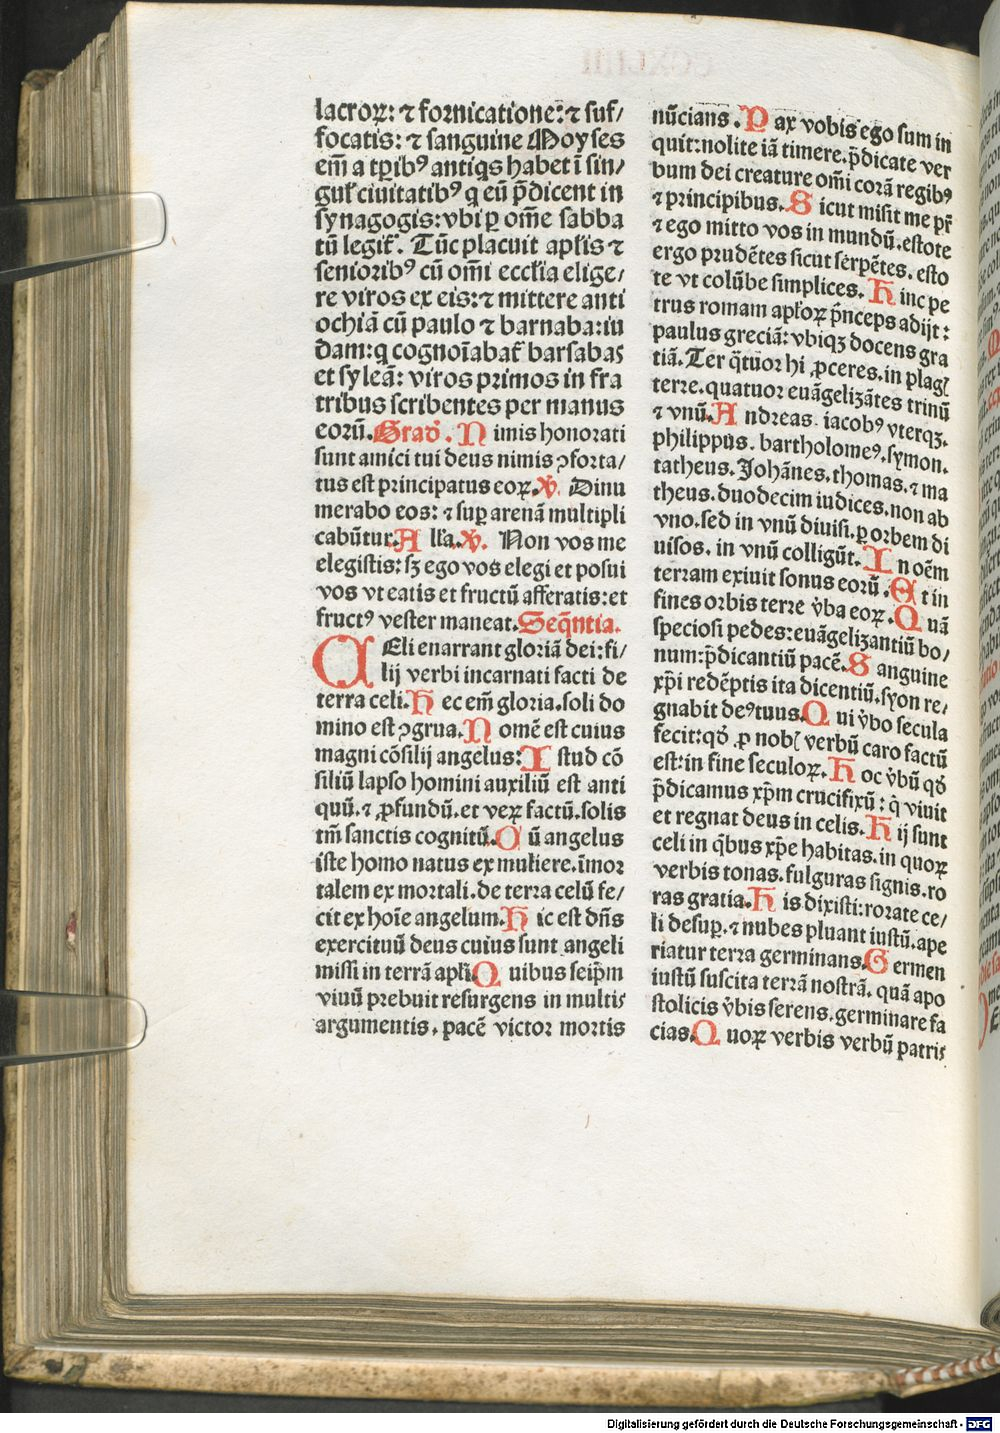 lacroꝝ: ⁊ fornicatione: ⁊ suf/
focatis: ⁊ sanguine Moyses
em̄ a tꝑibꝰ antiqͥs habet ī sin/
gul' ciuitatibꝰ q eū p̄dicent in
synagogis: vbi ꝑ om̄e sabba
tū legit̄. Tūc placuit apl'is ⁊
senioribꝰ cū om̄i eccl'ia elige/
re viros ex eis: ⁊ mittere anti
ochiā cū paulo ⁊ barnaba: iu
dam: q cognoīabat̄ barsabas
et syleā: viros primos in fra
tribus scribentes per manus
eorū. Grad'. Nimis honorati
sunt amici tui deus nimis ꝯforta/
tus est principatus eoꝝ. V̷. Dinu
merabo eos: ⁊ suꝑ arenā multipli
cabūtur. All'a. V̷. Non vos me
elegistis: sꝫ ego vos elegi et posui
vos vt eatis et fructū afferatis: et
fructꝰ vester maneat. Seq̄ntia.
CEli enarrant gloriā dei: fi/
lij verbi incarnati facti de
terra celi. Hec em̄ gloria. soli do
mino est ꝯgrua. Nomē est cuius
magni cōsilij angelus: Istud cō
siliū lapso homini auxiliū est anti
quū. ⁊ ꝓfundū. et veꝝ factū. solis
tm̄ sanctis cognitū. Cū angelus
iste homo natus ex muliere. īmor
talem ex mortali. de terra celū fe/
cit ex hoīe angelum. Hic est dn̄s
exercituū deus cuius sunt angeli
missi in terrā apl'i Quibus seip̄m
viuū prebuit resurgens in multis
argumentis. pacē victor mortis
nūcians. Pax vobis ego sum in
quit: nolite iā timere. p̄dicate ver
bum dei creature om̄i corā regibꝰ
⁊ principibus. Sicut misit me pr̄
⁊ ego mitto vos in mundū. estote
ergo prudētes sicut serpētes. esto
te vt colūbe simplices. Hinc pe
trus romam apl'oꝝ p̄nceps adijt:
paulus greciā: vbiqꝫ docens gra
tiā. Ter q̄tuor hi ꝓceres. in plagꝭ
terre. quatuor euāgelizātes trinū
⁊ vnū. Andreas. iacobꝰ vterqꝫ.
philippus. bartholomeꝰ. symon.
tatheus. Johānes. thomas. ⁊ ma
theus. duodecim iudices. non ab
vno. sed in vnū diuisi. ꝑ orbem di
uisos. in vnū colligūt. In oēm
terram exiuit sonus eorū. Et in
fines orbis terre v̄ba eoꝝ. Quā
speciosi pedes: euāgelizantiū bo/
num: p̄dicantiū pacē. Sanguine
xp̄i redēptis ita dicentiū. syon re/
gnabit deꝰ tuus. Qui v̄bo secula
fecit: qd' ꝓ nobꝭ verbū caro factū
est: in fine seculoꝝ. Hoc v̄bū qd'
p̄dicamus xp̄m crucifixū: q̇ viuit
et regnat deus in celis. Hij sunt
celi in q̄bus xp̄e habitas. in quoꝝ
verbis tonas. fulguras signis. ro
ras gratia. His dixisti: rorate ce/
li desuꝑ. ⁊ nubes pluant iustū. ape
riatur terra germinans. Germen
iustū suscita terrā nostrā. quā apo
stolicis v̄bis serens. germinare fa
cias. Quoꝝ verbis verbū patris
Digitalisierung gefördert durch die Deutsche Forschungsgemeinschaft - DFG